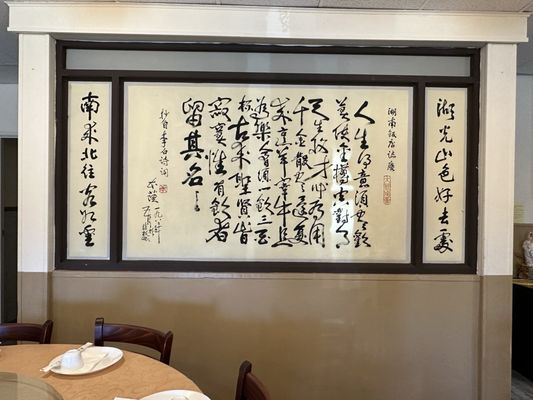 湖光山色好去處
湖南飯店誌慶
人生得意須盡歡
莫使金樽空對月
天生我才必有用
千金散盡還復
來烹羊宰牛且
為樂會須一飲三百
杯古來聖賢皆
寂寞惟有飲者
留其名
抄自李白詩詞
南來北往客如雲